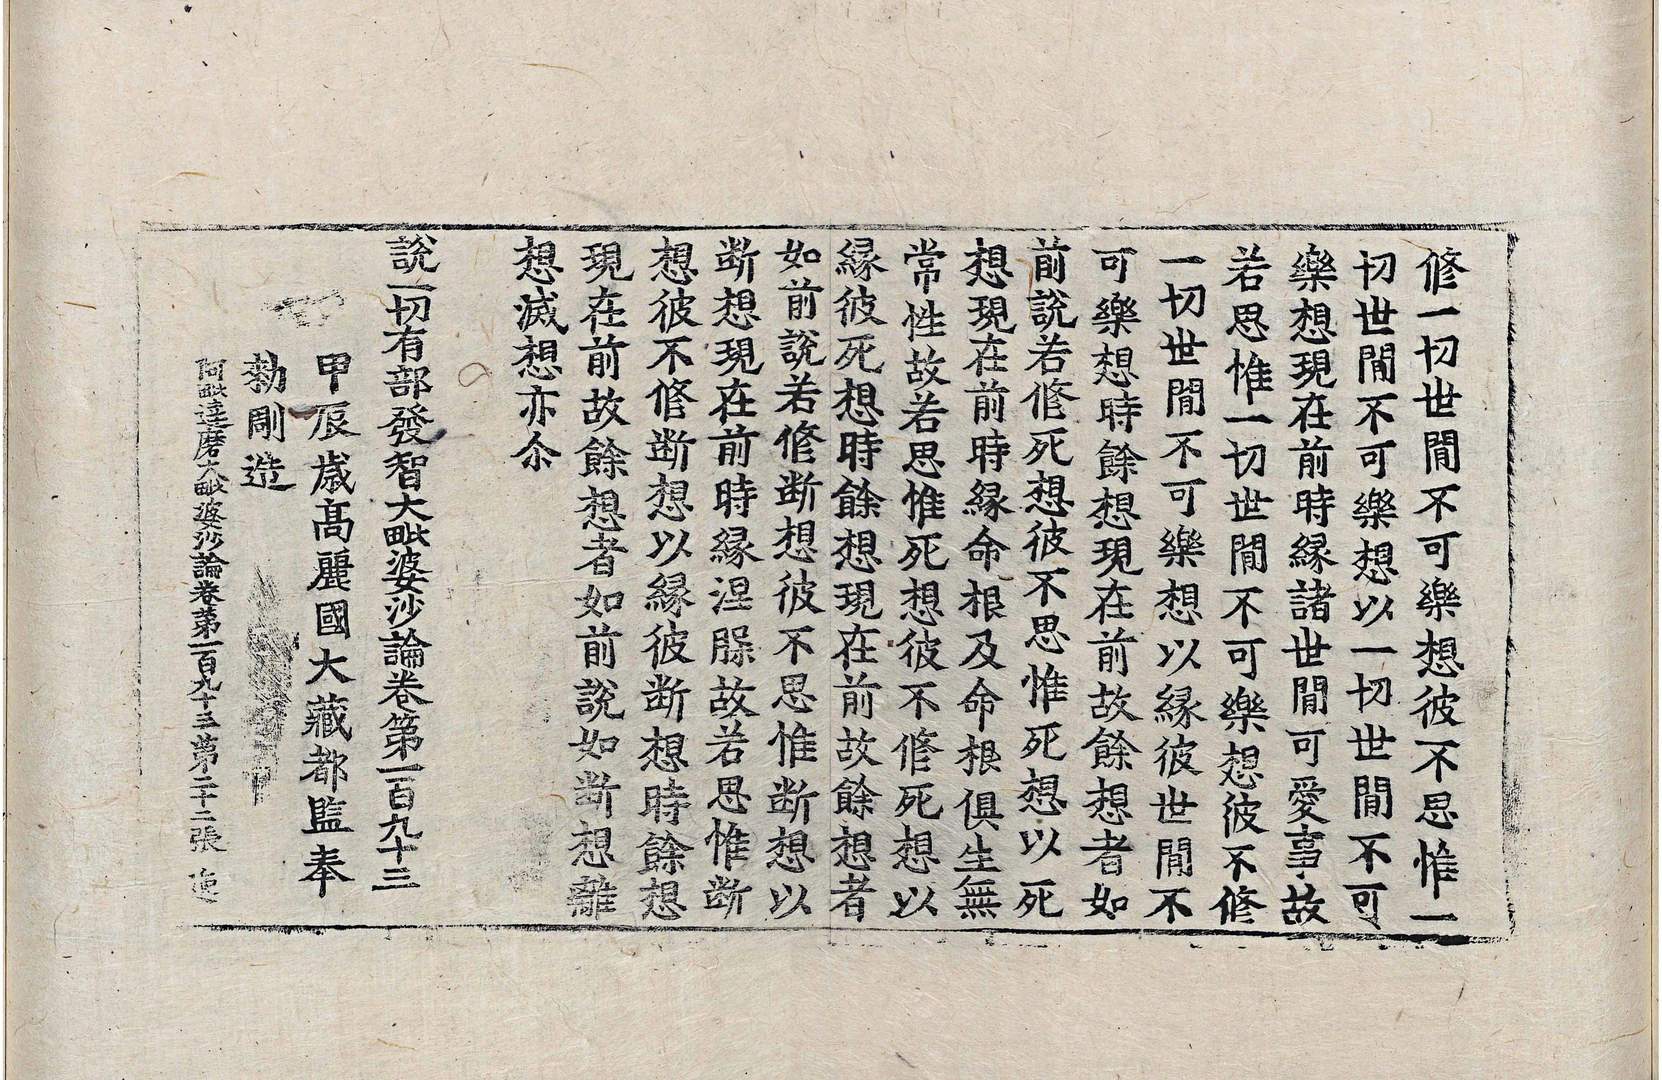 修一切世間不可樂想彼不思惟一
切世間不可樂想以一切世間不可
樂想現在前時緣諸世間可愛事故
若思惟一切世間不可樂想彼不修
一切世間不可樂想以緣彼世間不
可樂想時餘想現在前故餘想者如
前說若修死想彼不思惟死想以死
想現在前時緣命根及命根俱生無
常性故若思惟死想彼不修死想以
緣彼死想時餘想現在前故餘想者
如前說若修断想彼不思惟断想以
断想現在前時緣涅槃故若思惟断
想彼不修断想以緣彼断想時餘想
現在前故餘想者如前說如断想離
想滅想亦尒
說一切有部發智大毗婆沙論卷第一百九十三
甲辰歳髙麗國大藏都監奉
勑彫造
阿毗達磨大毗婆沙論卷第一百九十三第二十二張